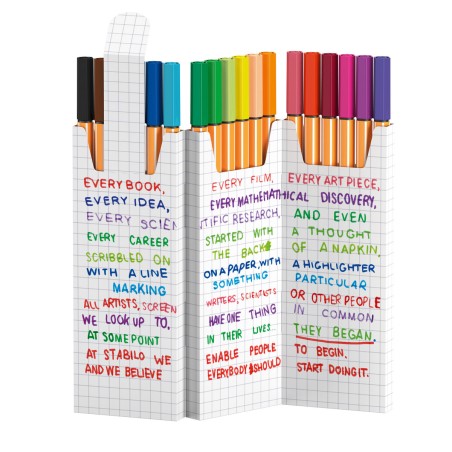 EVERY BOOK, EVERY FILM, EVERY ART PIECE,
EVERY IDEA, EVERY MATHEMATHICAL DISCOVERY,
EVERY SCIENTIFIC RESEARCH, AND EVEN
EVERY CAREER STARTED WITH A THOUGHT
SCRIBBLED ON THE BACK OF A NAPKIN,
WITH A LINE ON A PAPER, WITH A HIGHLIGHTER
MARKING SOMETHING PARTICULAR
ALL ARTISTS, SCREENWRITERS, SCIENTISTS OR OTHER PEOPLE
WE LOOK UP TO, HAVE ONE THING IN COMMON
AT SOME POINT IN THEIR LIVES THEY BEGAN.
AT STABILO WE ENABLE PEOPLE TO BEGIN.
AND WE BELIEVE EVERYBODY SHOULD START DOING IT.